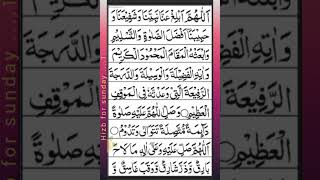 اَللّٰهُمَّ اَبْلِغْ عَنَّا نَبِيَّنَا وَشَفِيْعَنَا وَ
حَبِيْبَنَا اَفْضَلَ الصَّلٰوةِ وَالتَّسْلِيْمِ
وَابْعَثْهُ الْمَقَامَ الْمَحْمُوْدَ الْكَرِيْمَ
وَاٰتِهِ الْفَضِيْلَةَ وَالْوَسِيْلَةَ وَالدَّرَجَةَ
الرَّفِيْعَةَ الَّتِيْ وَعَدْتَّهٗ فِي الْمَوْقِفِ
الْعَظِيْمِ وَصَلِّ اللّٰهُمَّ عَلَيْهِ صَلٰوةً
دَآئِمَةً مُّتَّصِلَةً تَتَوَالٰى وَتَدُوْمُ
اَللّٰهُمَّ صَلِّ عَلَيْهِ وَعَلٰى اٰلِهٖ مَا لَاحَ
بَارِقٌ وَّذَرَّ شَارِقٌ وَّوَقَبَ غَاسِقٌ وَّ
Hizb for sunday ....1